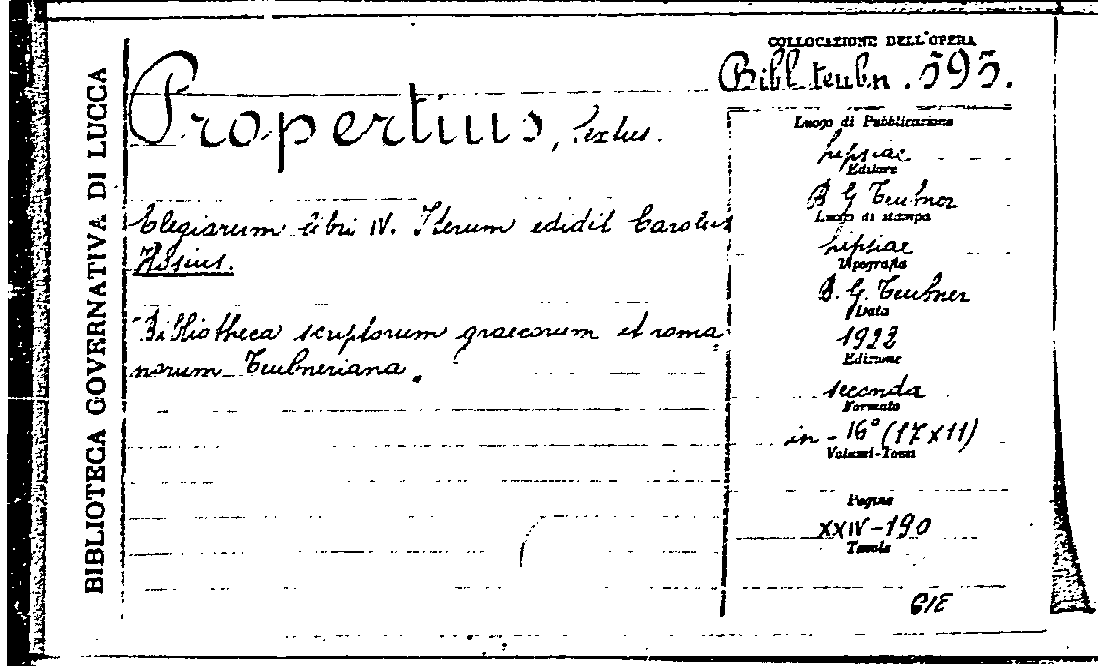 BIBLIOTECA GOVERNATIVA DI LUCCA
Propertius, Sextus.
Elegiarum libri IV. Iterum edidit Carolus
Hosius.
Bibliotheca scriptorum graecorum et roma
norum Teubneriana.
COLLOCAZIONE DELL'OPERA
Bibl. teubn. 595.
Luogo di Pubblicazione
Lipsiae
Editore
B G Teubner
Luogo di stampa
Lipsiae
Tipografia
B. G. Teubner
Data
1922
Edizione
seconda
Formato
in-16° (17x11)
Volumi-Tomi
Pagine
XXIV-190
Tavole